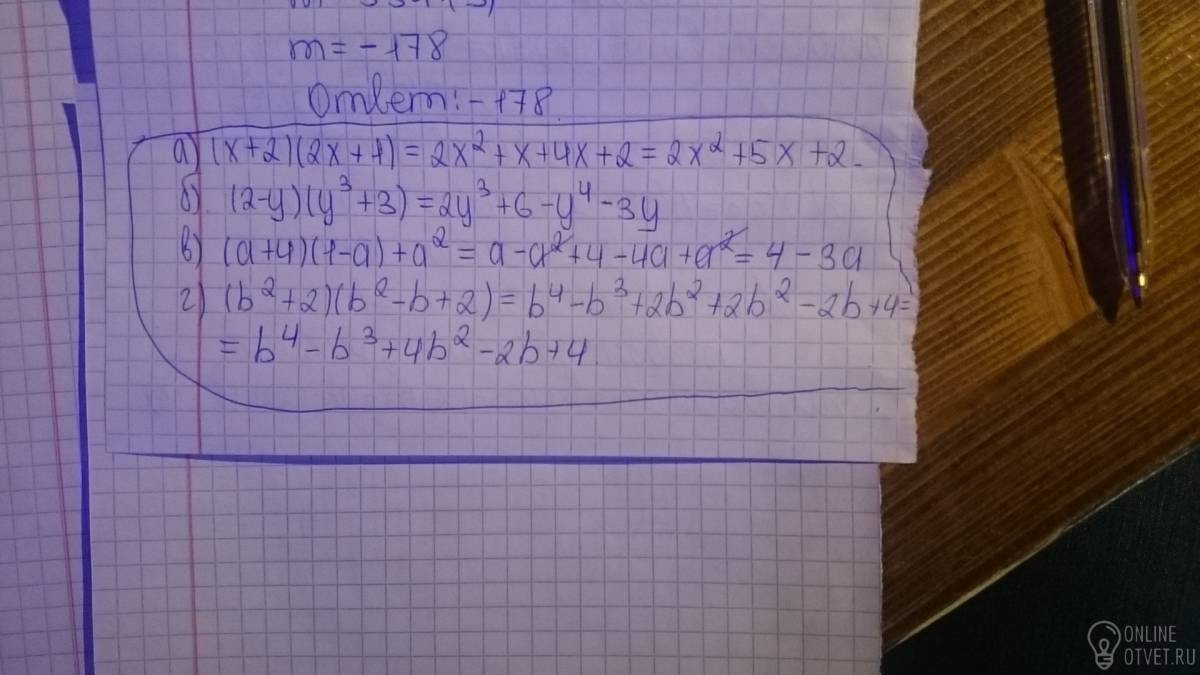 m = -178
Ответ: -178.
а) (x+2)(2x+1) = 2x² + x + 4x + 2 = 2x² + 5x + 2.
б) (2-y)(y³+3) = 2y³ + 6 - y⁴ - 3y
в) (a+4)(1-a) + a² = a - a² + 4 - 4a + a² = 4 - 3a
г) (b²+2)(b²-b+2) = b⁴ - b³ + 2b² + 2b² - 2b + 4 =
= b⁴ - b³ + 4b² - 2b + 4.
ONLINE
OTVET.RU